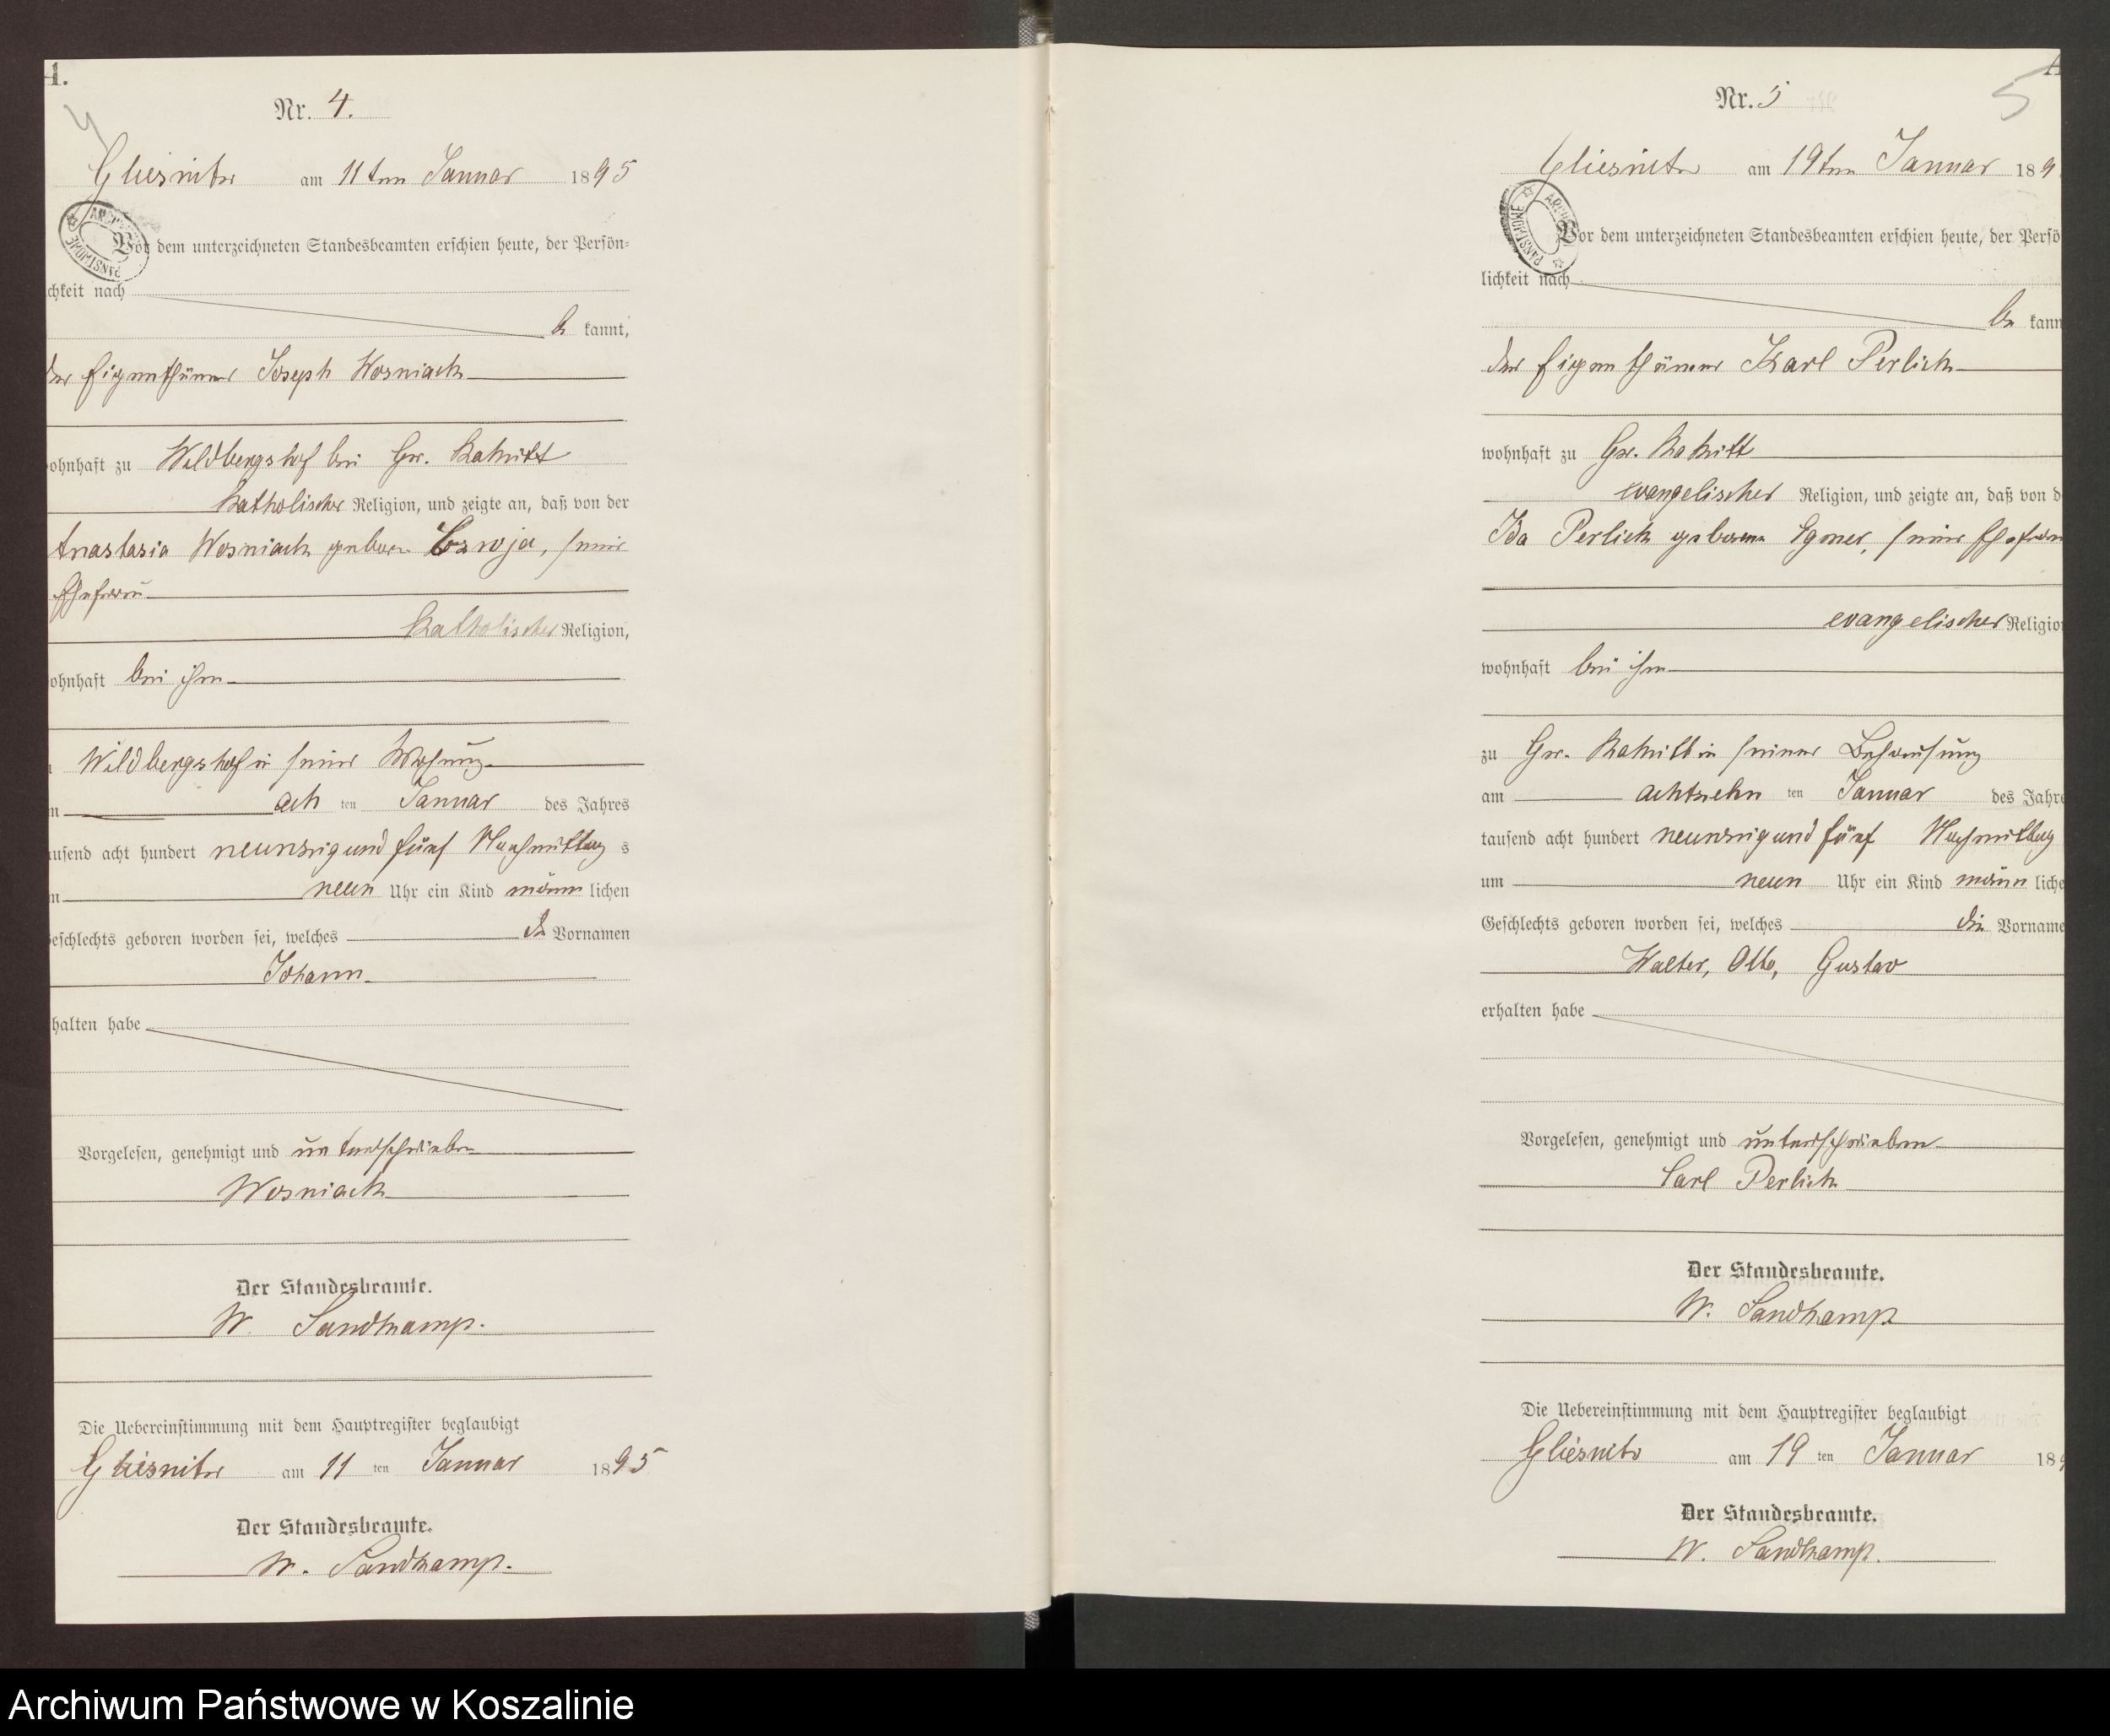 A.
4
Nr. 4.
Gliesnitz am 11ten Januar 1895
ARCHIWUM PAŃSTWOWE
Vor dem unterzeichneten Standesbeamten erschien heute, der Persön=
chkeit nach
be kannt,
der Eigenthümer Joseph Wosniack
ohnhaft zu Wildbergshof bei Gr.
katholischer Religion, und zeigte an, daß von der
Anastasia Wosniack geboren seine
Ehefrau
katholischer Religion,
ohnhaft bei ihm
Wildbergshof in seiner Wohnung
m ach ten Januar des Jahres
ausend acht hundert neunzig und fünf Nachmittag s
m neun Uhr ein Kind männ lichen
eschlechts geboren worden sei, welches den Vornamen
Johann
halten habe
Vorgelesen, genehmigt und unterschrieben
Wosniack
Der Standesbeamte.
W. Sandkamp.
Die Uebereinstimmung mit dem Hauptregister beglaubigt
Gliesnitz am 11 ten Januar 1895
Der Standesbeamte.
W. Sandkamp.
A
5
Nr. 5
Gliesnitz am 19ten Januar 189
ARCHIWUM PAŃSTWOWE
Vor dem unterzeichneten Standesbeamten erschien heute, der Persö
lichkeit nach
be kann
der Eigenthümer Karl Perlick
wohnhaft zu Gr.
evangelischer Religion, und zeigte an, daß von d
Ida Perlick geborene seine Ehefrau
evangelischer Religio
wohnhaft bei ihm
zu Gr. in seiner Behausung
am achtzehn ten Januar des Jahre
tausend acht hundert neunzig und fünf Nachmittag
um neun Uhr ein Kind männ liche
Geschlechts geboren worden sei, welches die Vorname
Walter, Otto, Gustav
erhalten habe
Vorgelesen, genehmigt und unterschrieben
Carl Perlick
Der Standesbeamte.
W. Sandkamp
Die Uebereinstimmung mit dem Hauptregister beglaubigt
Gliesnitz am 19 ten Januar 189
Der Standesbeamte.
W. Sandkamp.
Archiwum Państwowe w Koszalinie